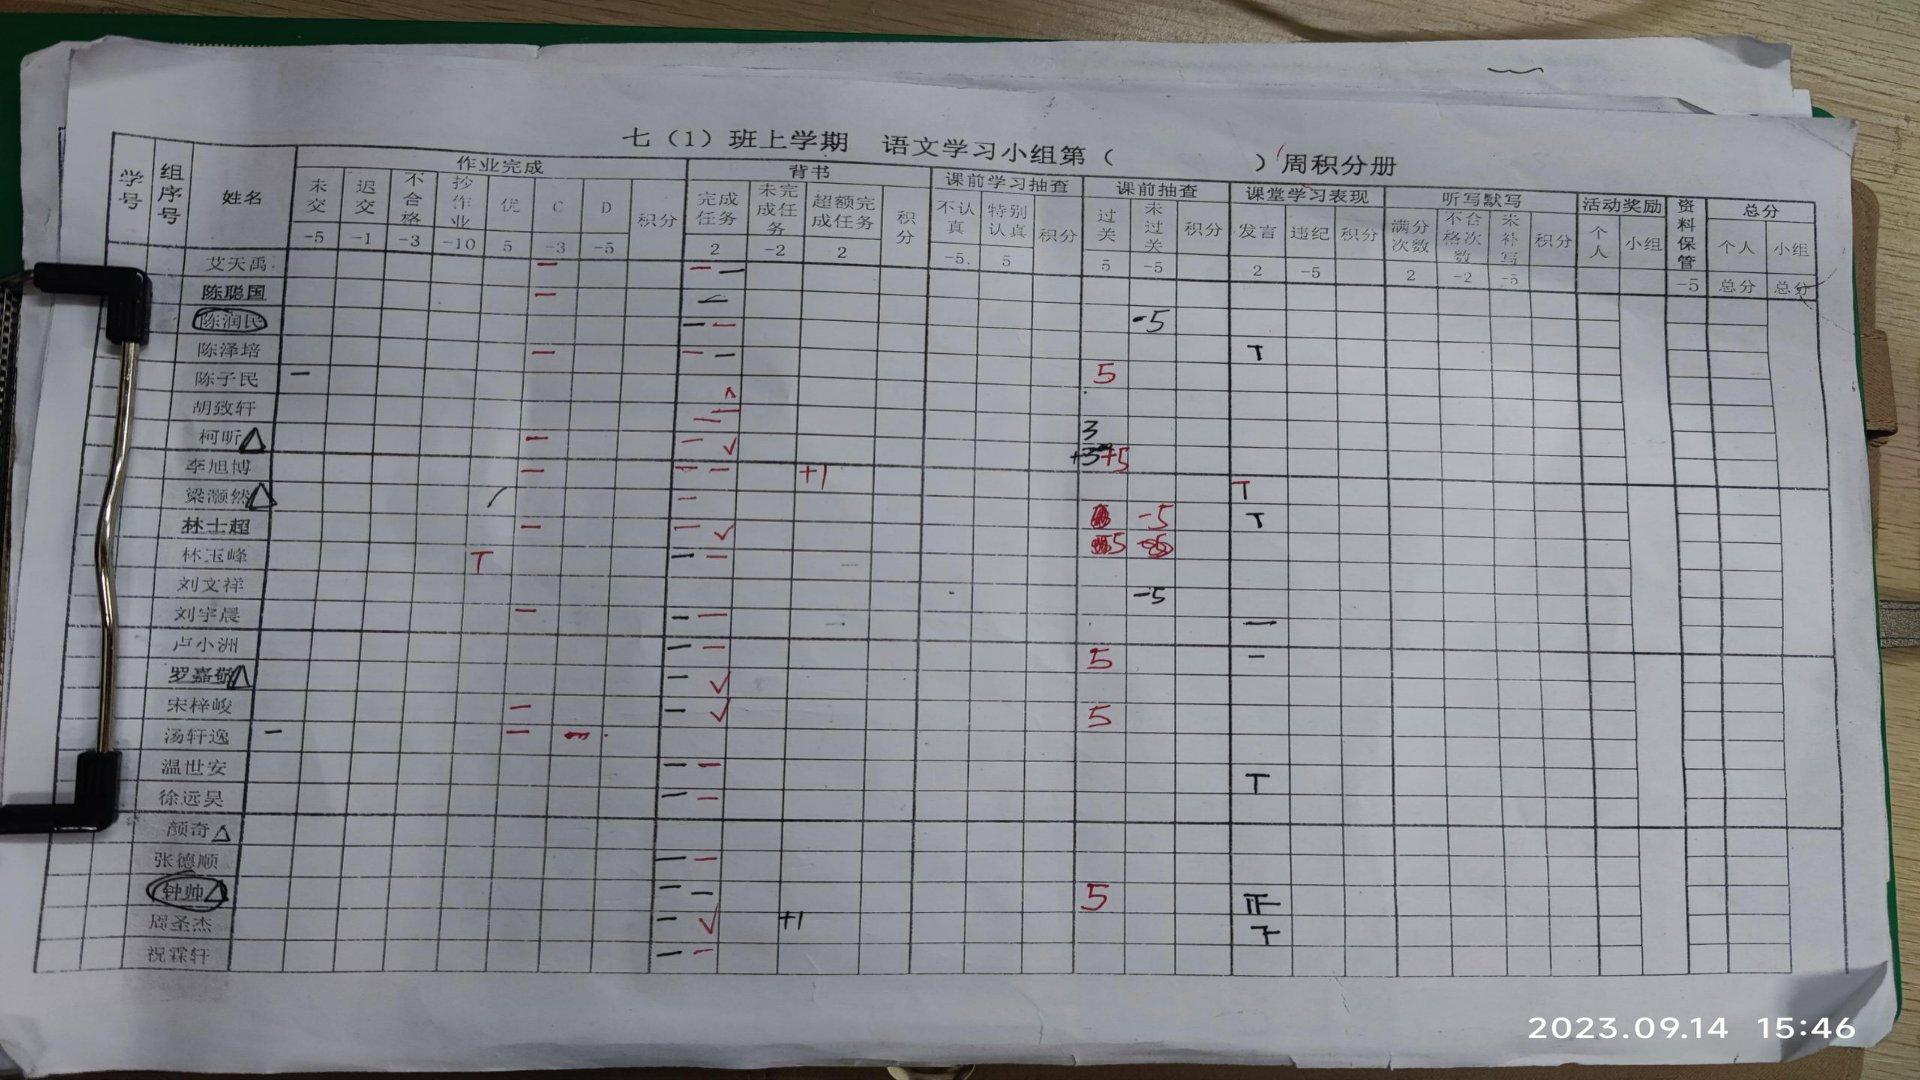 七（1）班上学期 语文学习小组第（ ）周积分册
学号 组序号 姓名 作业完成 背书 课前学习抽查 课前抽查 课堂学习表现 听写默写 活动奖励 资料保管 总分
未交 迟交 不合格 抄作业 优 C D 积分 完成任务 未完成任务 超额完成任务 积分 不认真 特别认真 积分 过关 未过关 积分 发言 违纪 积分 满分次数 不合格次数 未补写 积分 个人 小组 个人 小组
-5 -1 -3 -10 5 -3 -5 2 -2 2 -5 5 5 -5 2 -5 2 -2 -5 -5 总分 总分
艾天禹
陈聪国
陈润民 -5
陈泽培 T
陈子民 5
胡致轩
柯昕 △ √ 3
李旭博 +1 +5
梁灏然 △ T
林士超 √ -5 T
林玉峰 T 5
刘文祥 -5
刘宇晨
卢小洲 5
罗嘉敬 △ √
宋梓峻 √ 5
汤轩逸
温世安 T
徐远昊
颜奇 △
张德顺
钟帅 △ 5
周圣杰 √ +1
祝霖轩
2023.09.14 15:46